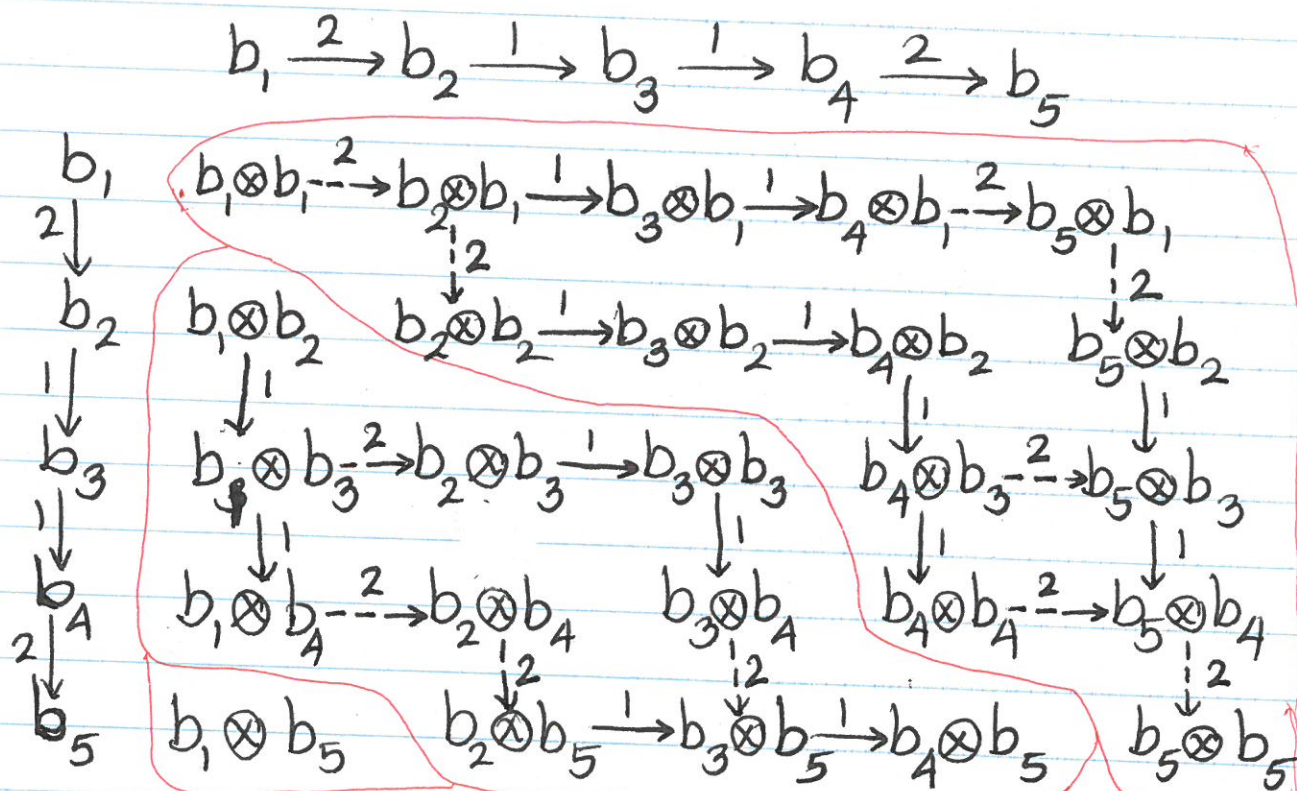 b₁ 2→ b₂ 1→ b₃ 1→ b₄ 2→ b₅
b₁ b₁⊗b₁ 2⇢ b₂⊗b₁ 1→ b₃⊗b₁ 1→ b₄⊗b₁ 2⇢ b₅⊗b₁
2 2 2
b₂ b₁⊗b₂ b₂⊗b₂ 1→ b₃⊗b₂ 1→ b₄⊗b₂ b₅⊗b₂
1 1 1 1
b₃ b₁⊗b₃ 2⇢ b₂⊗b₃ 1→ b₃⊗b₃ b₄⊗b₃ 2⇢ b₅⊗b₃
1 1 1 1 1
b₄ b₁⊗b₄ 2⇢ b₂⊗b₄ b₃⊗b₄ b₄⊗b₄ 2⇢ b₅⊗b₄
2 2 2 2
b₅ b₁⊗b₅ b₂⊗b₅ 1→ b₃⊗b₅ 1→ b₄⊗b₅ b₅⊗b₅